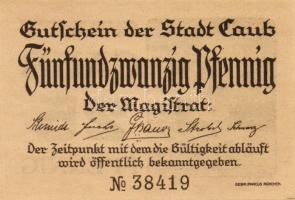 Gutschein der Stadt Caub
Fünfundzwanzig Pfennig
Der Magistrat:
Der Zeitpunkt mit dem die Gültigkeit abläuft
wird öffentlich bekanntgegeben.
№ 38419
GEBR. PARCUS MÜNCHEN.